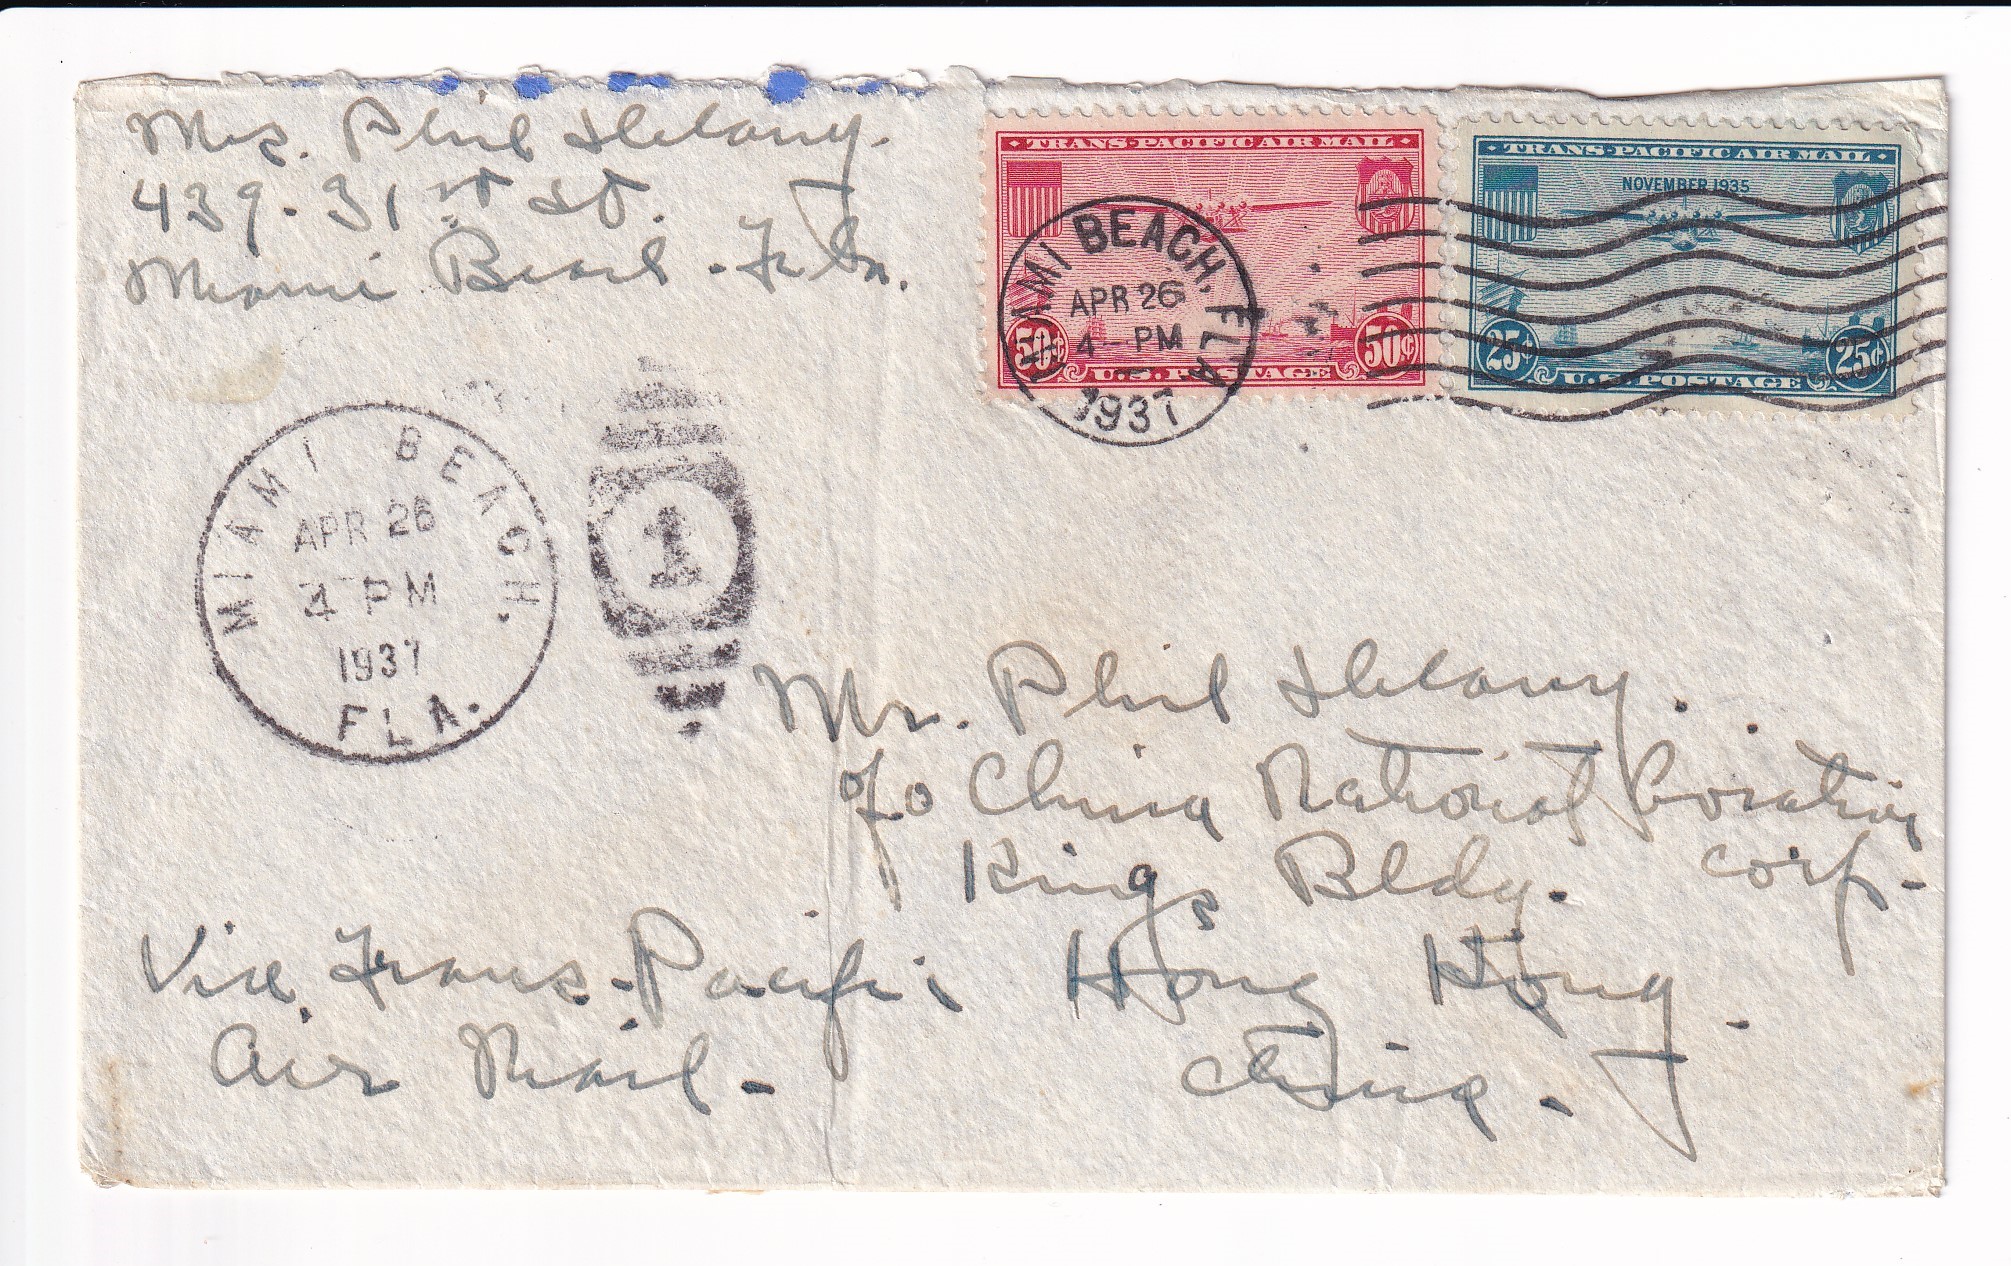 Mrs. Phil Delany.
439. 31st St.
Miami Beach. Fla.
TRANS-PACIFIC AIR MAIL
50¢ 50¢
U.S. POSTAGE
TRANS-PACIFIC AIR MAIL
NOVEMBER 1935
25¢ 25¢
U.S. POSTAGE
MIAMI BEACH, FLA.
APR 26
4-PM
1937
MIAMI BEACH,
APR 26
4 PM
1937
FLA.
1
Mr. Phil Delany.
c/o China National Aviation
Corp.
Kings Bldg.
Hong Kong.
China.
Via Trans-Pacific
Air Mail.